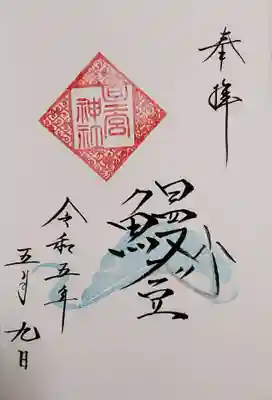 奉拝
鰻
令和五年
五月九日
宮
神社